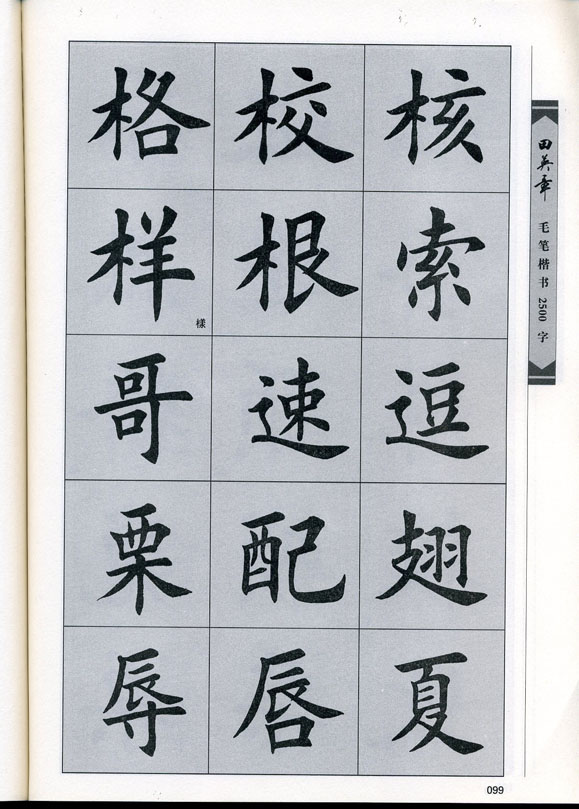 格校核
样根索
樣
哥速逗
栗配翅
辱唇夏
田英章
毛笔楷书2500字
099